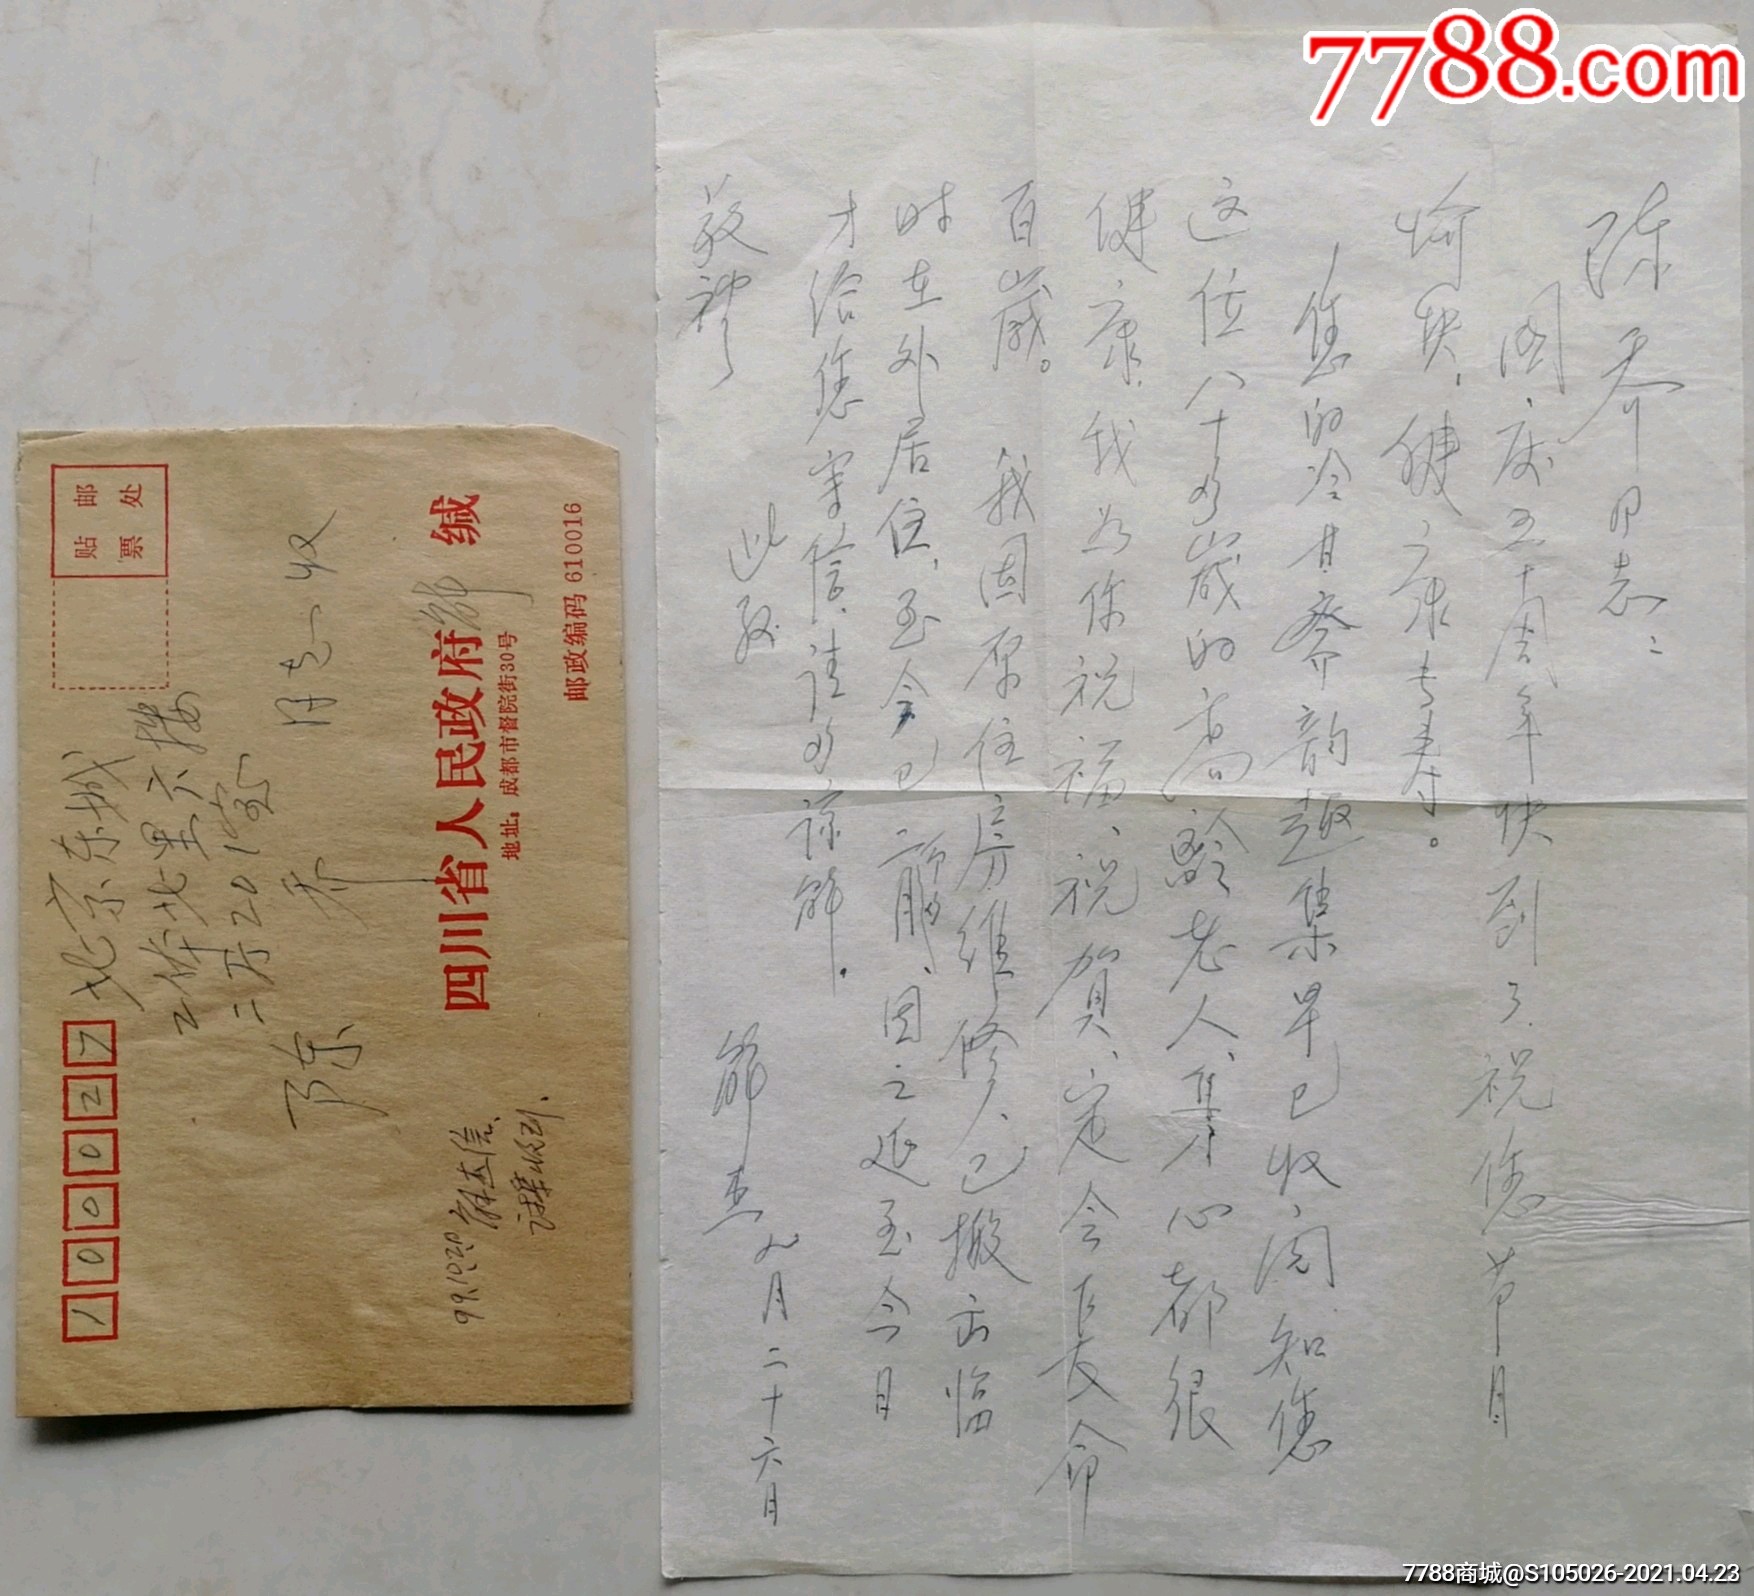 7788.com
陈乔同志：
国庆五十周年快到了，祝您节日
愉快，健康长寿。
您的冷甘斋韵趣集早已收阅，知您
这位八十多岁的高龄老人，集才心都很
健康，我为你祝福、祝贺，定会长命
百岁。
我因原住房维修，已搬出临
时在外居住，至今已二个月，因之延至今日
才给您写信，请多谅解。
此致
敬礼
解杰
九月二十六日
贴邮
票处
100027
北京东城
工体北里六楼
二门201室
陈乔同志收
四川省人民政府解缄
地址：成都市督院街30号
邮政编码 610016
99.10.20
解杰信，
收到.
7788商城@S105026-2021.04.23